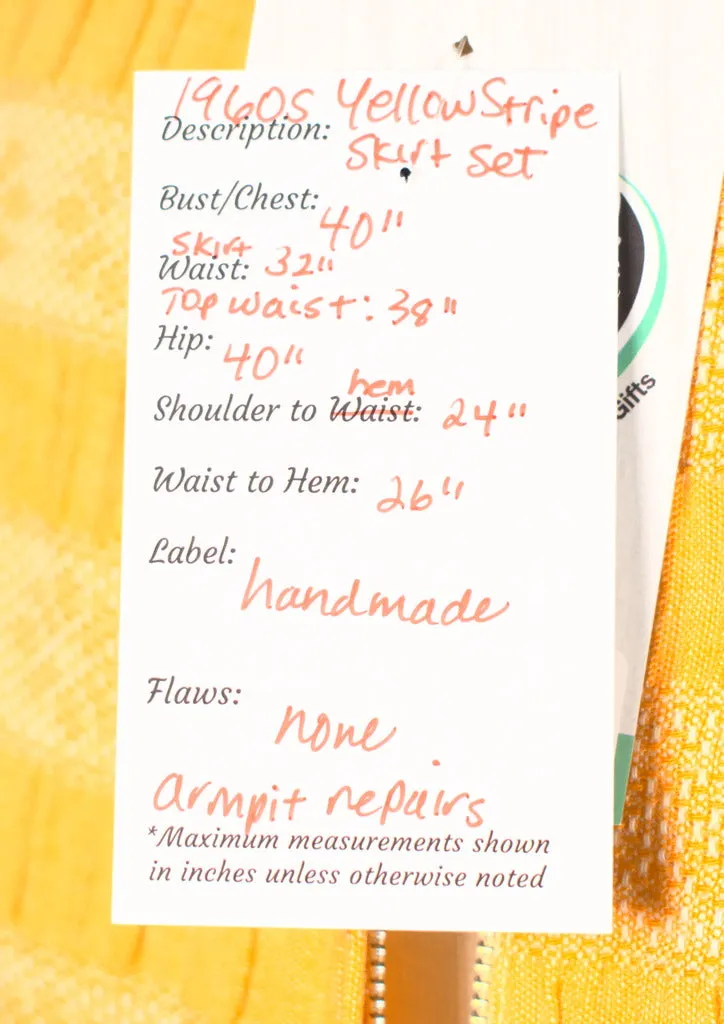 1960s Yellow Stripe
Description:
Skirt Set
Bust/Chest:
40"
Skirt
Waist: 32"
Top waist: 38"
Hip:
40"
hem
Shoulder to Waist: 24"
Waist to Hem: 26"
Label:
handmade
Flaws:
none
armpit repairs
*Maximum measurements shown
in inches unless otherwise noted
Gifts